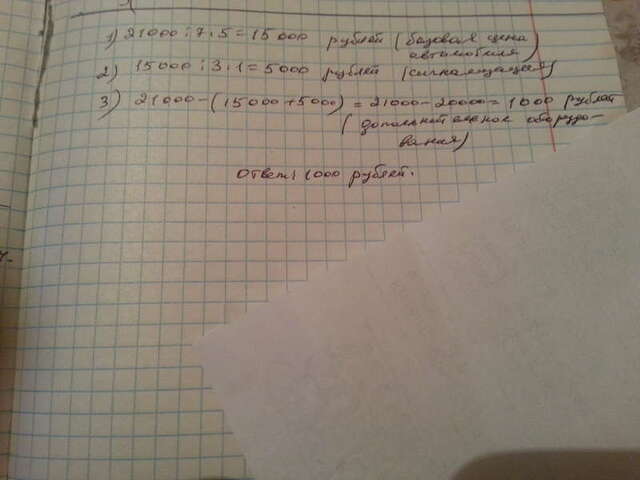 1) 21000 : 7 · 5 = 15000 рублей (базовая цена
автомобиля)
2) 15000 : 3 · 1 = 5000 рублей (сигнализация)
3) 21000 - (15000 + 5000) = 21000 - 20000 = 1000 рублей
(дополнительное оборудо-
вания)
Ответ: 1000 рублей.